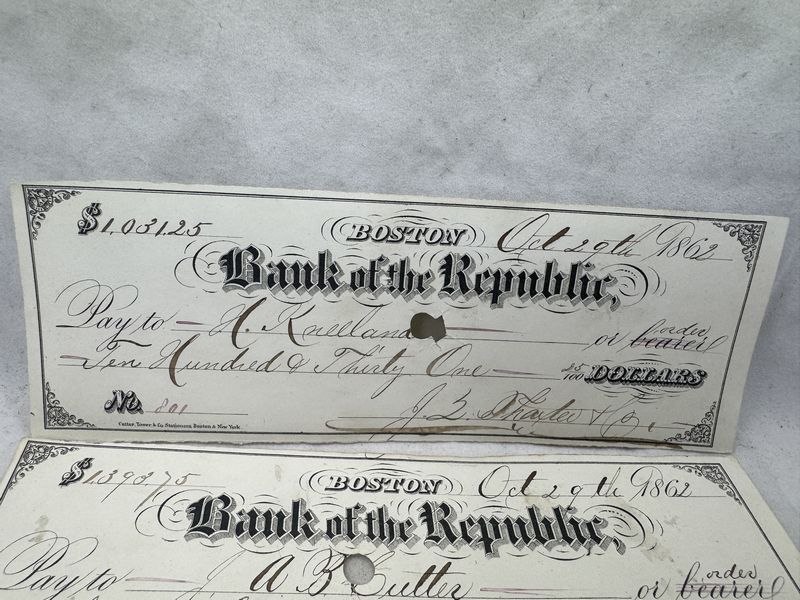 $1,031.25
BOSTON Oct 29th 1862
Bank of the Republic,
Pay to H. Kneeland or bearer order
Ten Hundred & Thirty One 25/100 DOLLARS
No. 801
J. L. Thaxter & Co.
Cutter, Tower & Co. Stationers, Boston & New York.
$1393.75
BOSTON Oct 29th 1862
Bank of the Republic,
Pay to J A B Butler or bearer order